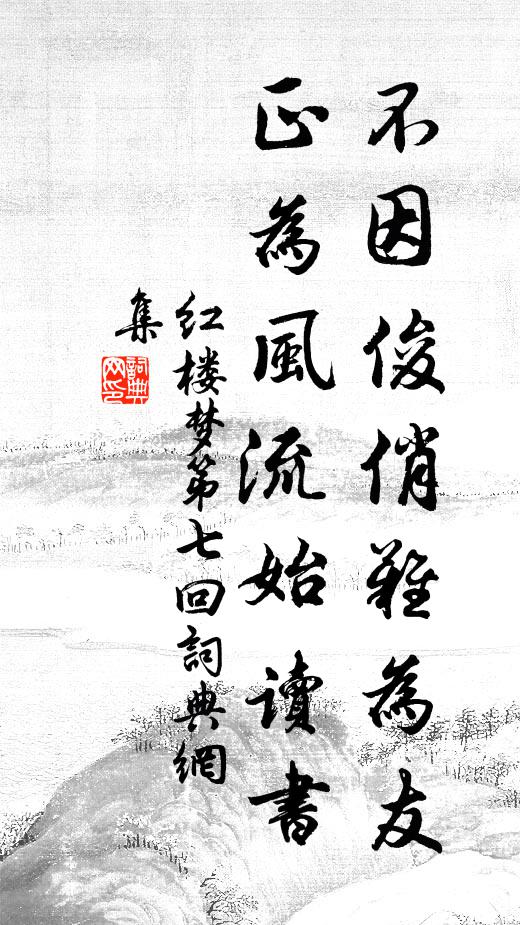 不因俊俏難為友
正為風流始讀書
红楼梦第七回詞典網
集
詞典網印